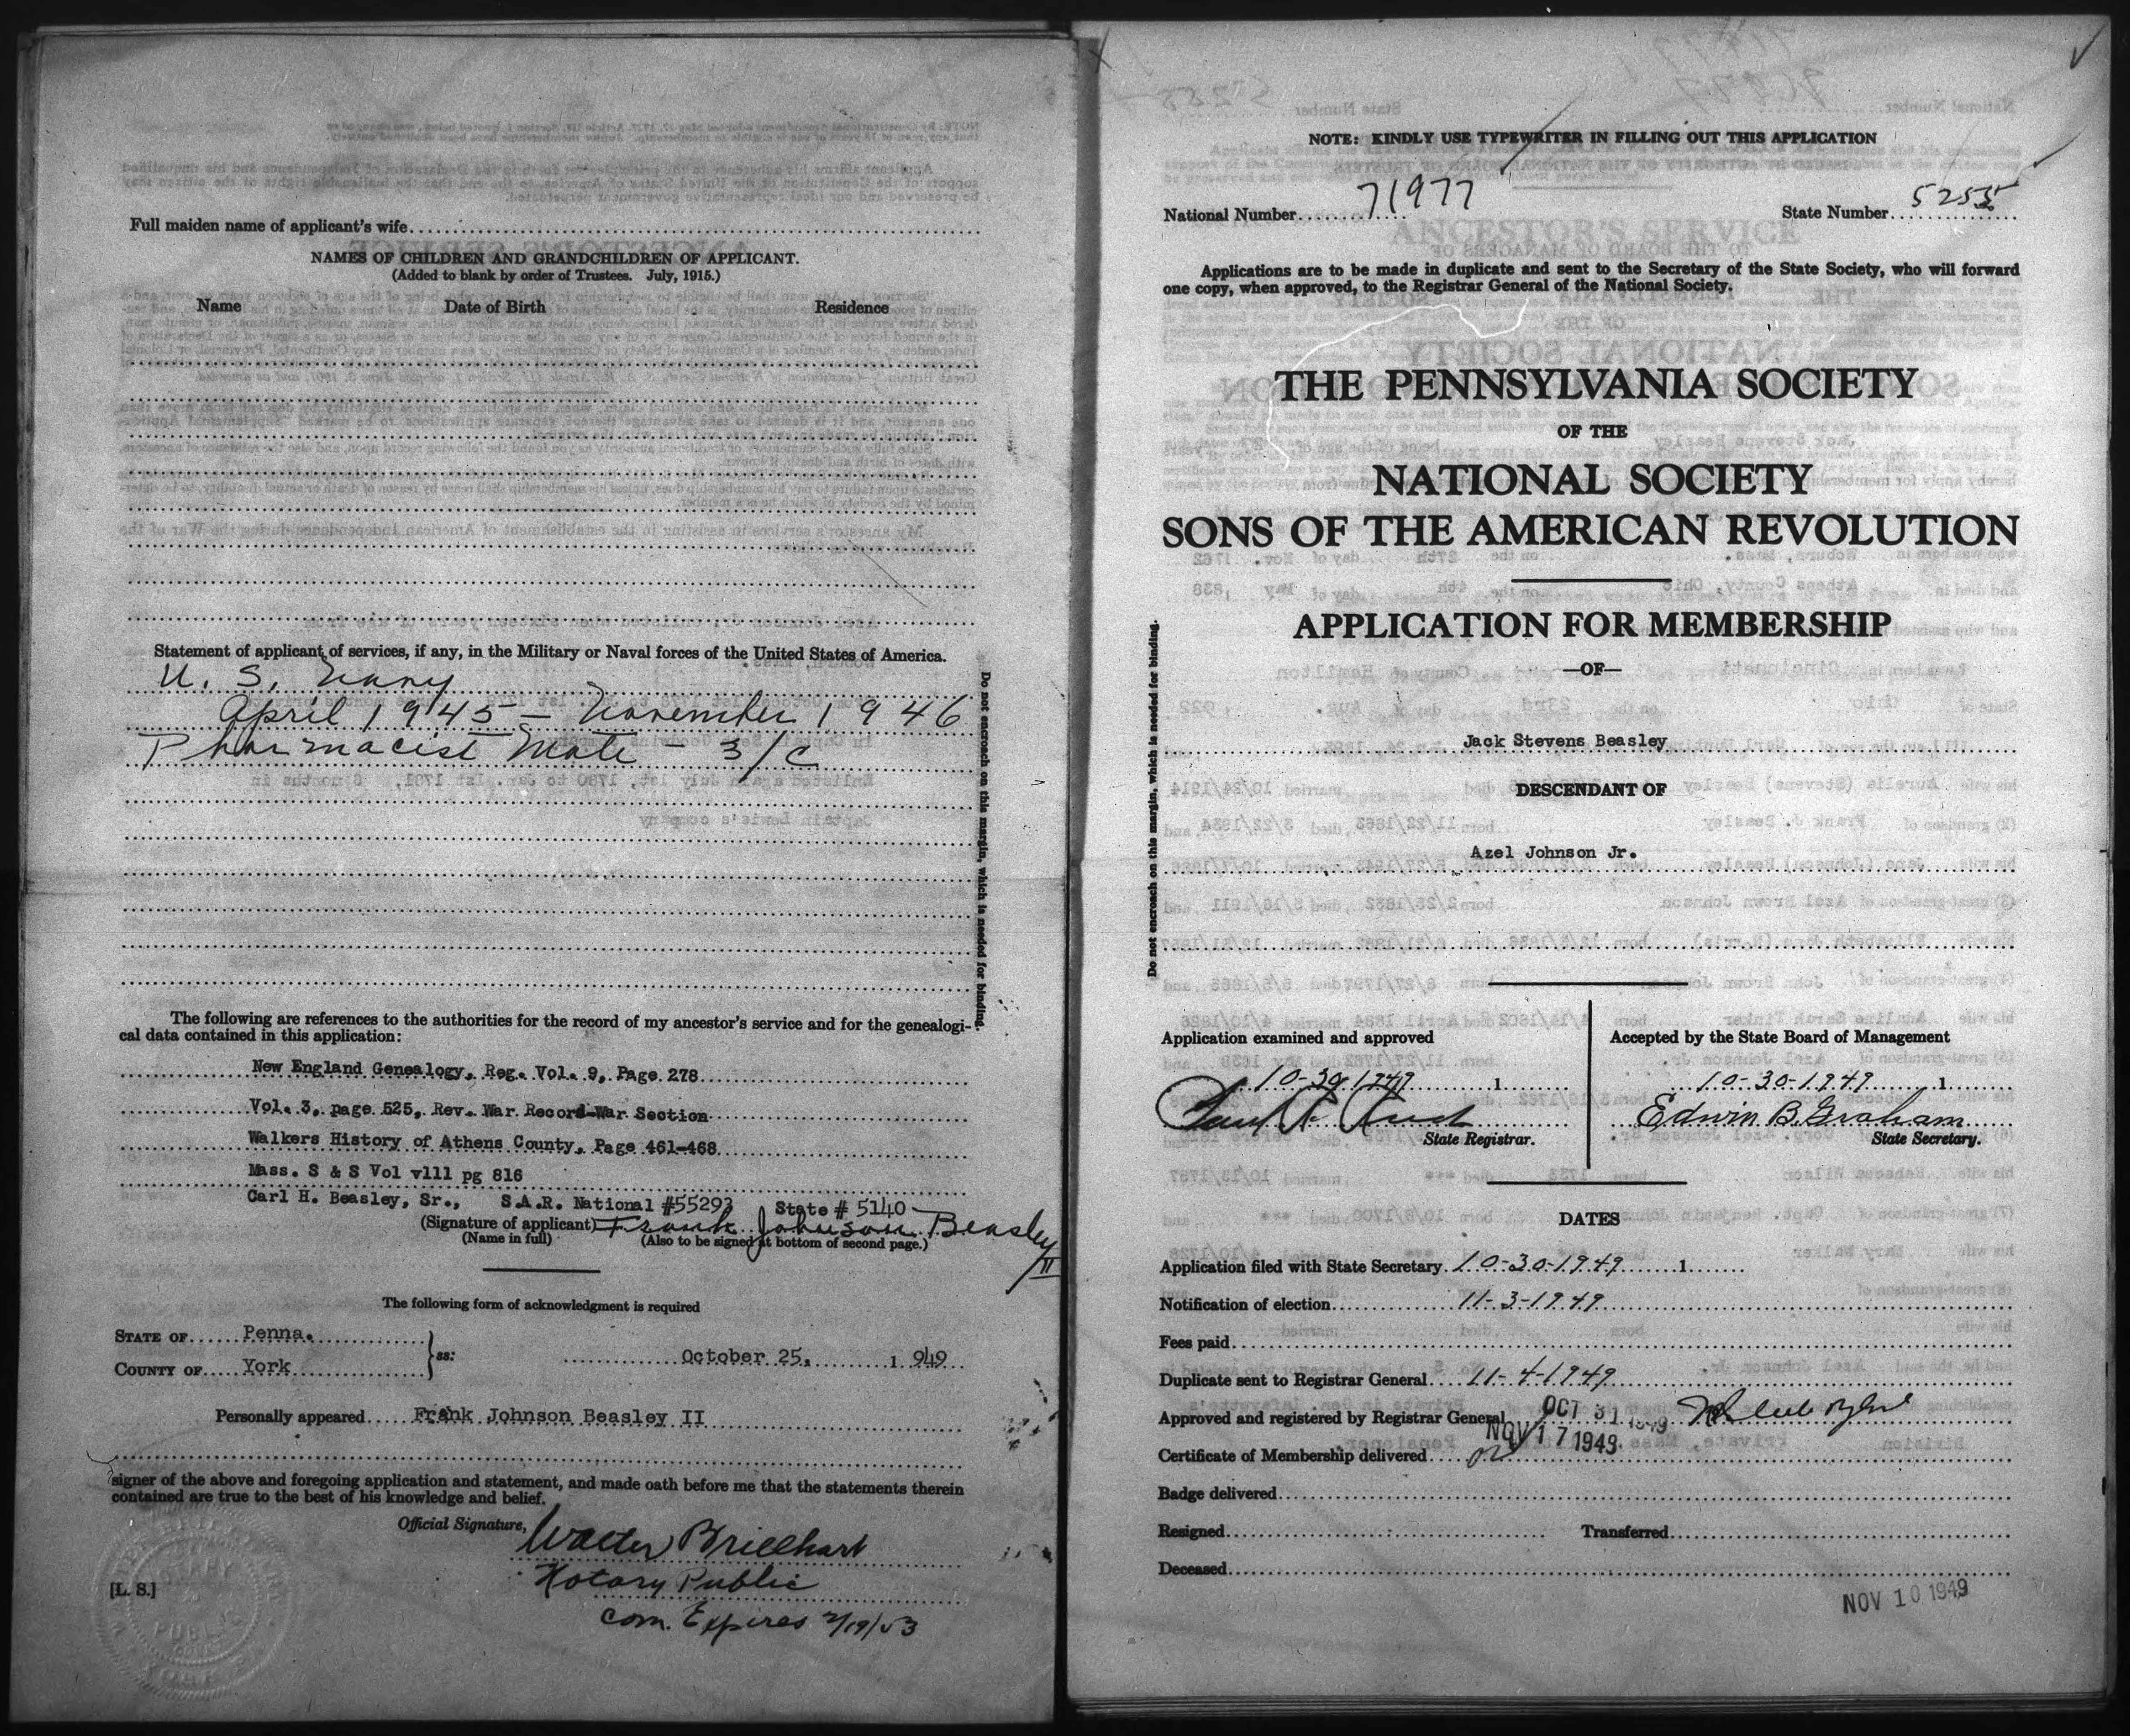 Full maiden name of applicant's wife
NAMES OF CHILDREN AND GRANDCHILDREN OF APPLICANT.
(Added to blank by order of Trustees. July, 1915.)
Name Date of Birth Residence
Statement of applicant of services, if any, in the Military or Naval forces of the United States of America.
U. S. Navy
April 1945 – November 1946
Pharmacist Mate – 3/c
Do not encroach on this margin, which is needed for binding.
The following are references to the authorities for the record of my ancestor's service and for the genealogi-
cal data contained in this application:
New England Genealogy, Reg. Vol. 9, Page 278
Vol. 3, page 525, Rev. War Record-War Section
Walkers History of Athens County, Page 461-468
Mass. S & S Vol vlll pg 816
Carl H. Beasley, Sr., S.A.R. National #55293 State # 5140
(Signature of applicant) Frank Johnson Beasley II
(Name in full) (Also to be signed at bottom of second page.)
The following form of acknowledgment is required
STATE OF Penna.
COUNTY OF York
ss: October 25, 1949
Personally appeared Frank Johnson Beasley II
signer of the above and foregoing application and statement, and made oath before me that the statements therein
contained are true to the best of his knowledge and belief.
Official Signature, Walter Brillhart
Notary Public
[L. S.]
Com. Expires 2/19/53
NOTE: KINDLY USE TYPEWRITER IN FILLING OUT THIS APPLICATION
National Number 71977 State Number 5255
Applications are to be made in duplicate and sent to the Secretary of the State Society, who will forward
one copy, when approved, to the Registrar General of the National Society.
THE PENNSYLVANIA SOCIETY
OF THE
NATIONAL SOCIETY
SONS OF THE AMERICAN REVOLUTION
APPLICATION FOR MEMBERSHIP
—OF—
Jack Stevens Beasley
DESCENDANT OF
Azel Johnson Jr.
Do not encroach on this margin, which is needed for binding.
Application examined and approved
10-30-1949 1
State Registrar.
Accepted by the State Board of Management
10-30-1949 1
Edwin B. Graham
State Secretary.
DATES
Application filed with State Secretary 10-30-1949 1
Notification of election 11-3-1949
Fees paid
Duplicate sent to Registrar General 11-4-1949
Approved and registered by Registrar General OCT 31 1949
NOV 17 1949
Certificate of Membership delivered
Badge delivered
Resigned Transferred
Deceased
NOV 10 1949